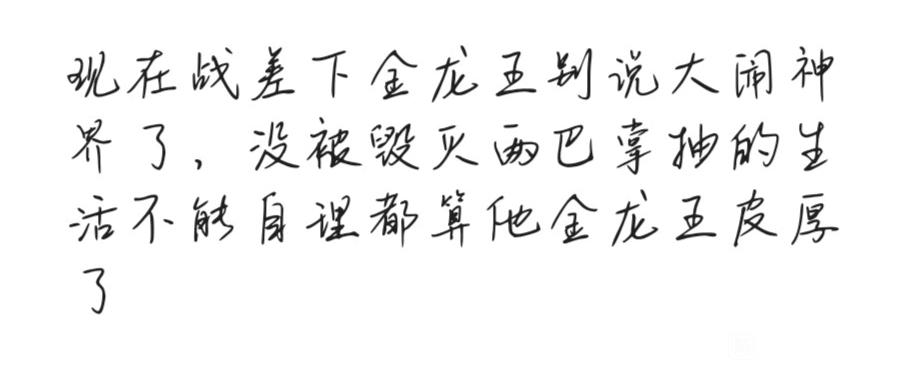 现在战差下金龙王别说大闹神
界了，没被毁灭两巴掌抽的生
活不能自理都算他金龙王皮厚
了